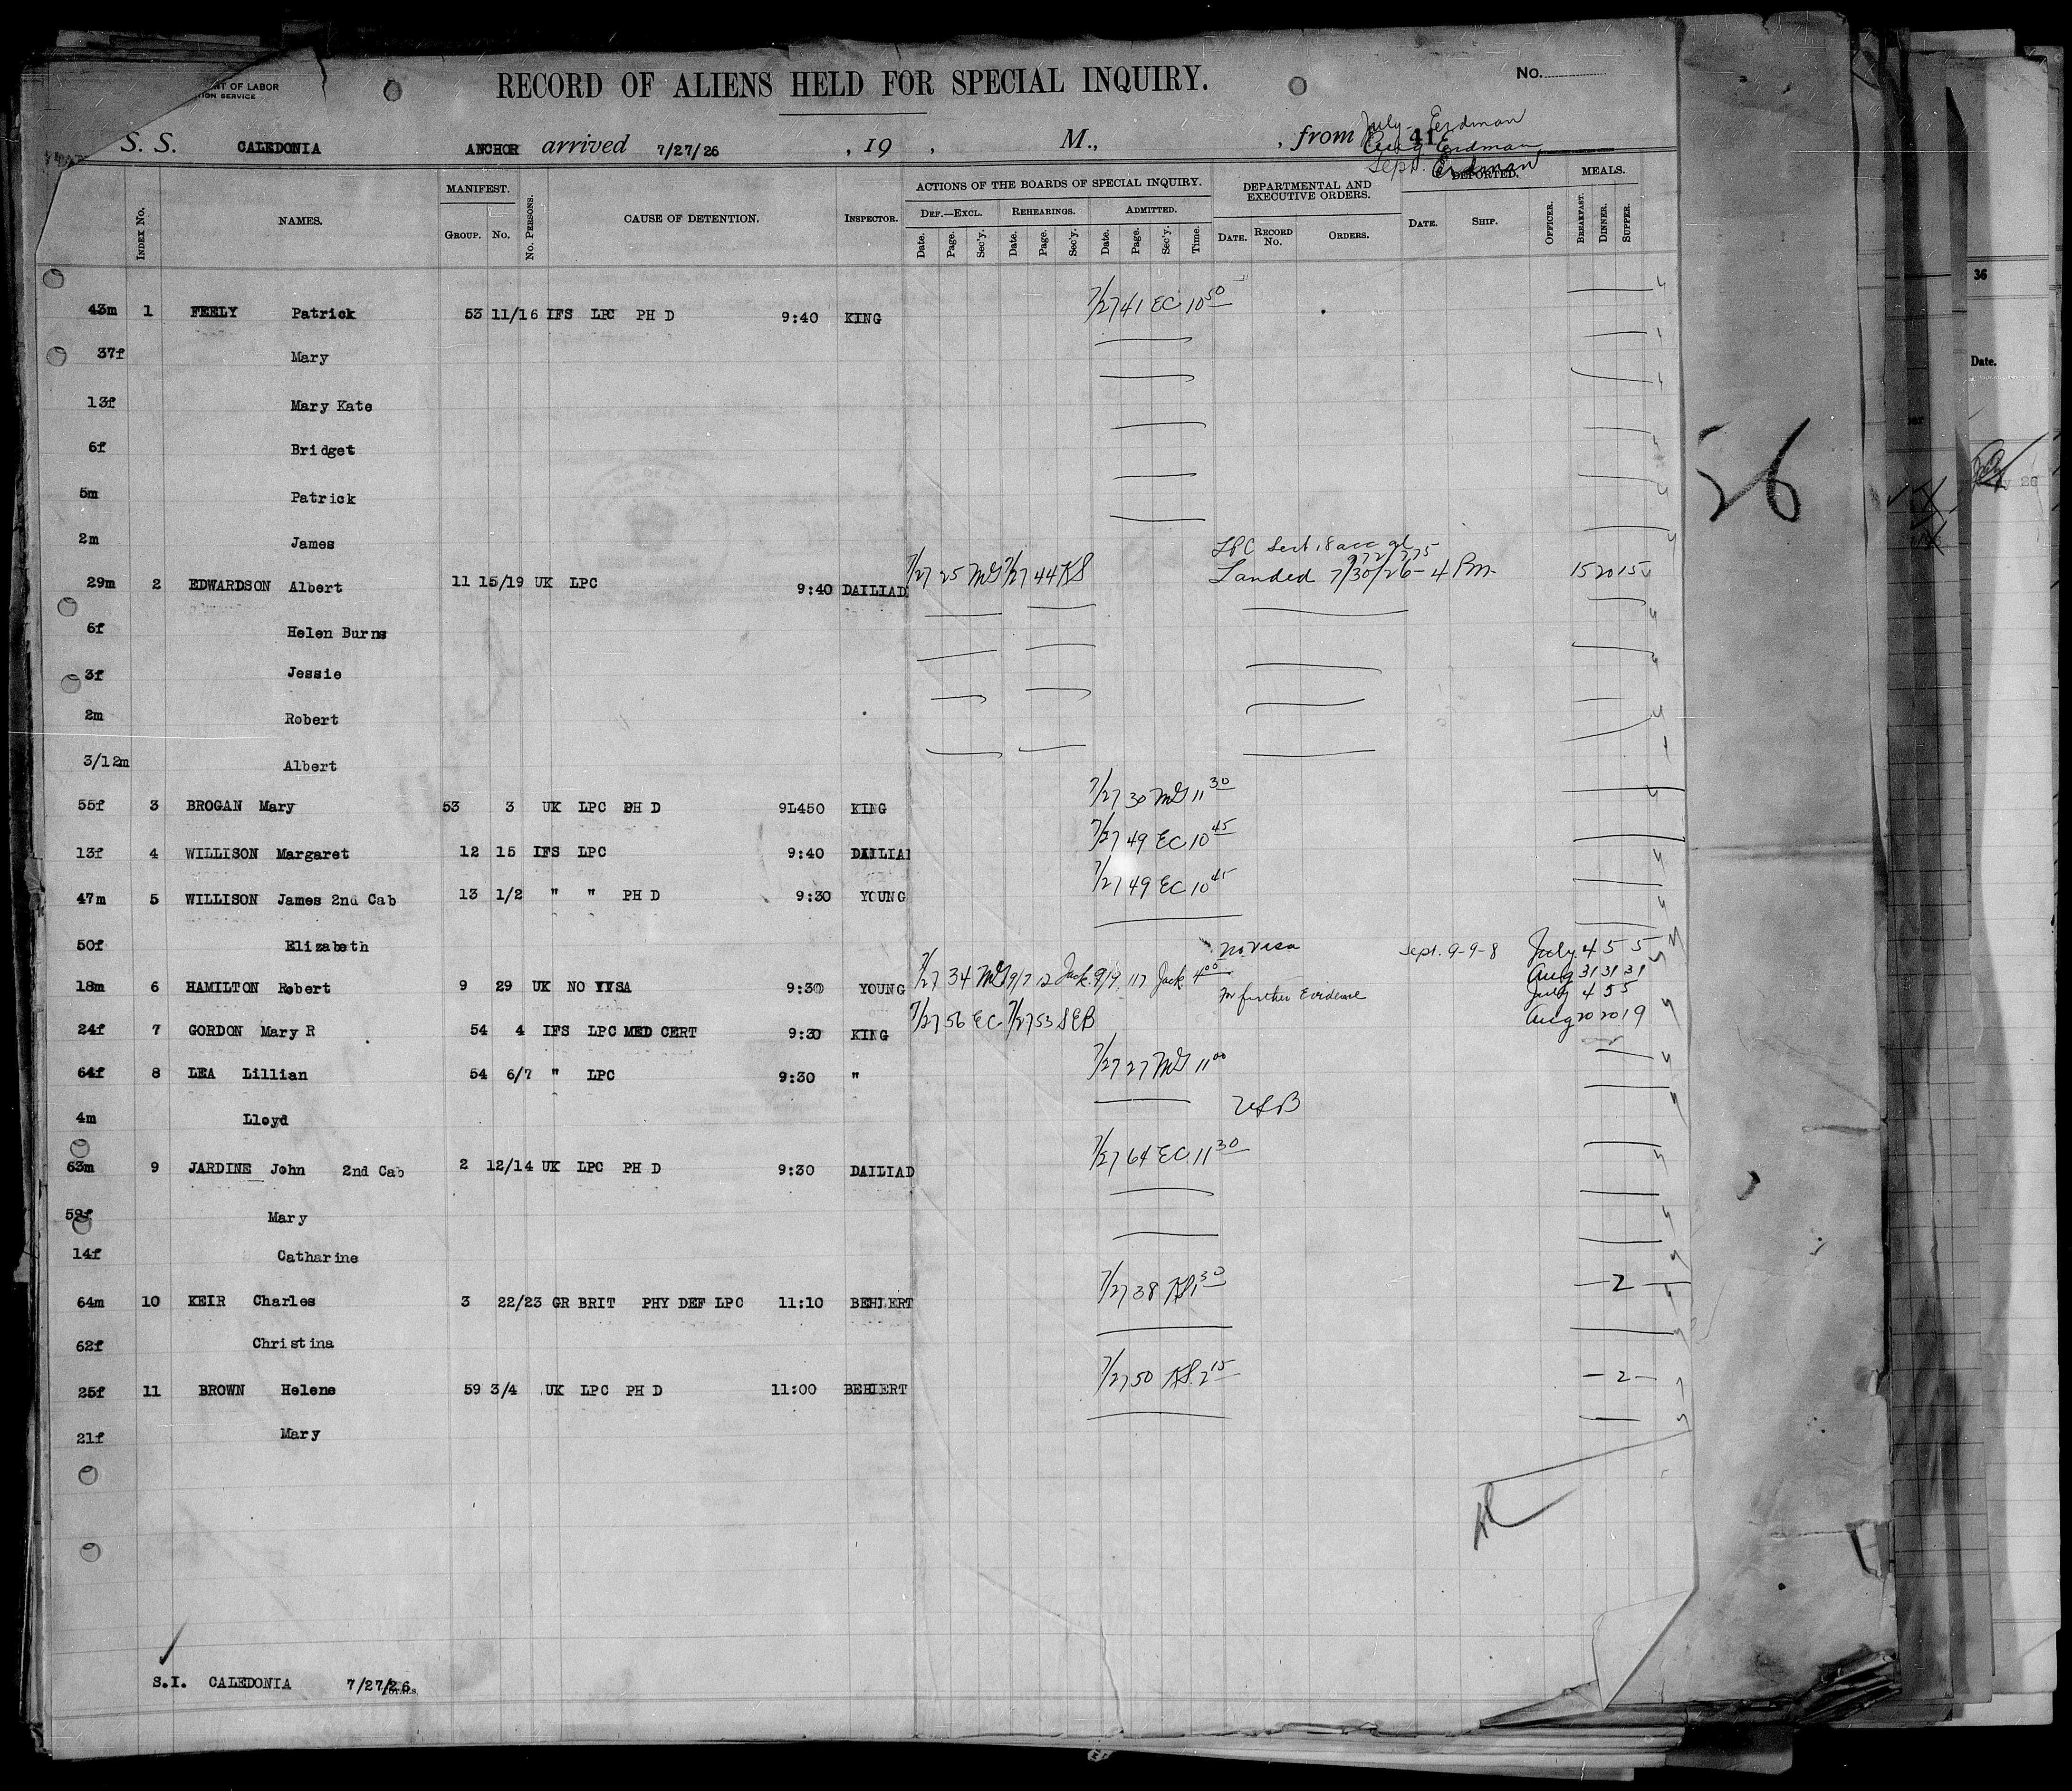 NT OF LABOR
TION SERVICE
RECORD OF ALIENS HELD FOR SPECIAL INQUIRY.
No.
S. S. CALEDONIA ANCHOR arrived 7/27/26 , 19 , M., , from 41
July - Erdman
Aug Erdman
Sept. Erdman
INDEX No. NAMES. MANIFEST. GROUP. No. No. PERSONS. CAUSE OF DETENTION. INSPECTOR. ACTIONS OF THE BOARDS OF SPECIAL INQUIRY. DEF.—EXCL. REHEARINGS. ADMITTED. DEPARTMENTAL AND EXECUTIVE ORDERS. DEPORTED. MEALS.
Date. Page. Sec'y. Date. Page. Sec'y. Date. Page. Sec'y. Time. DATE. RECORD No. ORDERS. DATE. SHIP. OFFICER. BREAKFAST. DINNER. SUPPER.
43m 1 FEELY Patrick 53 11/16 IFS LPC PH D 9:40 KING 7/27 41 EC 10 50
37f Mary
13f Mary Kate
6f Bridget
5m Patrick
2m James
29m 2 EDWARDSON Albert 11 15/19 UK LPC 9:40 DAILIAD 7/27 25 MG 7/27 44 KS Landed 7/30/26 - 4 Pm. 15 20 15
6f Helen Burns
3f Jessie
2m Robert
3/12m Albert
55f 3 BROGAN Mary 53 3 UK LPC PH D 9L450 KING 7/27 30 MG 11 30
13f 4 WILLISON Margaret 12 15 IFS LPC 9:40 DAILIAD 7/27 49 EC 10 45
47m 5 WILLISON James 2nd Cab 13 1/2 " " PH D 9:30 YOUNG 7/27 49 EC 10 45
50f Elizabeth
18m 6 HAMILTON Robert 9 29 UK NO VISA 9:30 YOUNG 7/27 34 MG 9/7 12 Jack. 9/9 117 Jack 4 00 No visa Sept. 9-9-8 July 4 5 5
Aug 31 31 31
24f 7 GORDON Mary R 54 4 IFS LPC MED CERT 9:30 KING 7/27 56 EC. 7/27 53 SEB for further Evidence July 4 5 5
Aug 20 20 19
64f 8 LEA Lillian 54 6/7 " LPC 9:30 " 7/27 27 MG 11 00
4m Lloyd
63m 9 JARDINE John 2nd Cab 2 12/14 UK LPC PH D 9:30 DAILIAD 7/27 64 EC. 11 30
52f Mary
14f Catharine
64m 10 KEIR Charles 3 22/23 GR BRIT PHY DEF LPC 11:10 BEHLERT 7/27 38 KS 1 30 - 2 -
62f Christina
25f 11 BROWN Helene 59 3/4 UK LPC PH D 11:00 BEHLERT 7/27 50 KS. 2 15 - 2 -
21f Mary
S.I. CALEDONIA 7/27/26
26
36
Date.